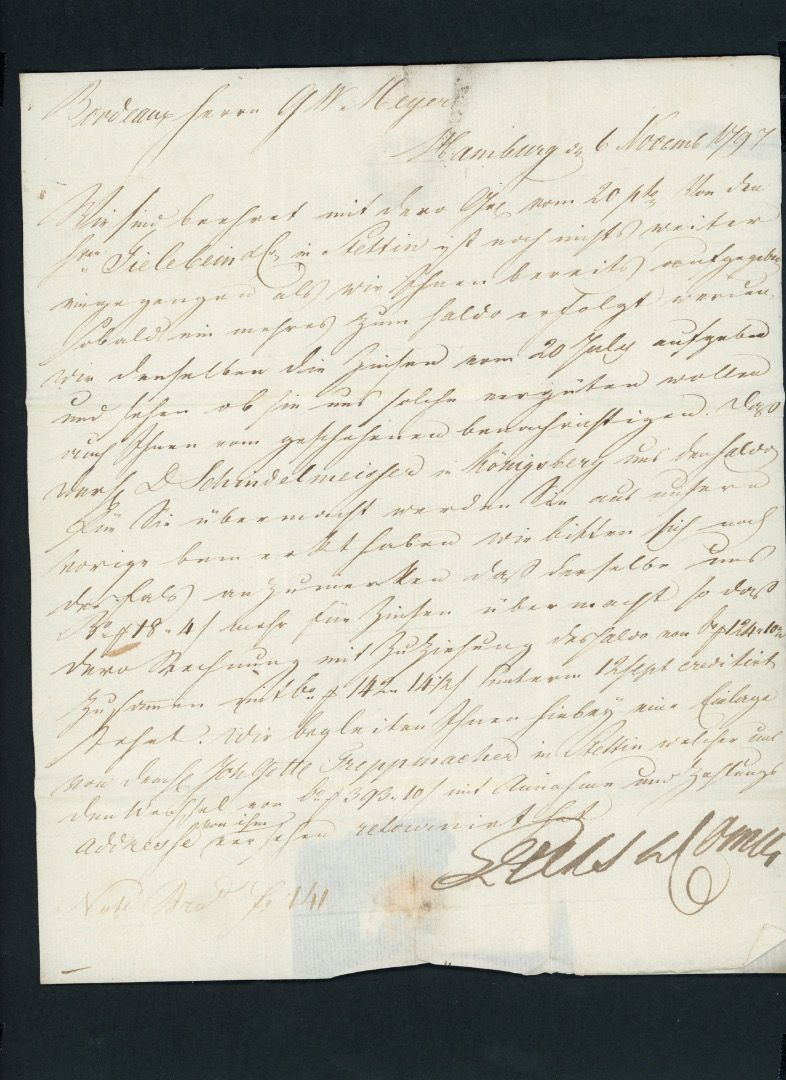 Bordeaux Herrn G W Meyer
Hamburg d 6 Novemb 1797
Wir sind beehret mit dero vom 20 pto Von den
Hrn Tielebein & Co in Stettin ist noch nichts weiter
eingegangen als wir Ihnen bereits aufgegeben
sobald ein mehres zum Saldo erfolgt werden
wir denselben die Zinsen vom 20 July aufgeben
und sehen ob sie uns solche vergüten wollen
auch Ihnen vom geschehenen benachrichtigen. Daß
D Schindelmeisser in Königsberg uns den Saldo
für Sie übermacht werden Sie aus unsern
vorige bemerkt haben wir bitten sich noch
desfals anzumerken daß derselbe uns
Bo 18 " 4 mehr für Zinsen übermacht so daß
dero Rechnung mit Zuziehung des Saldo von 124 " 10
Zusammen mit bo 142 " 14 unterm 12 Sept creditirt
stehet. Wir begleiten Ihnen hiebey eine Einlage
von Joh Gottl Treppmacher in Stettin welcher uns
den Wechsel von Bo 393 " 10 mit Annahme und Zahlungs
Addresse von ihm versehen retournirt hat
Note 141